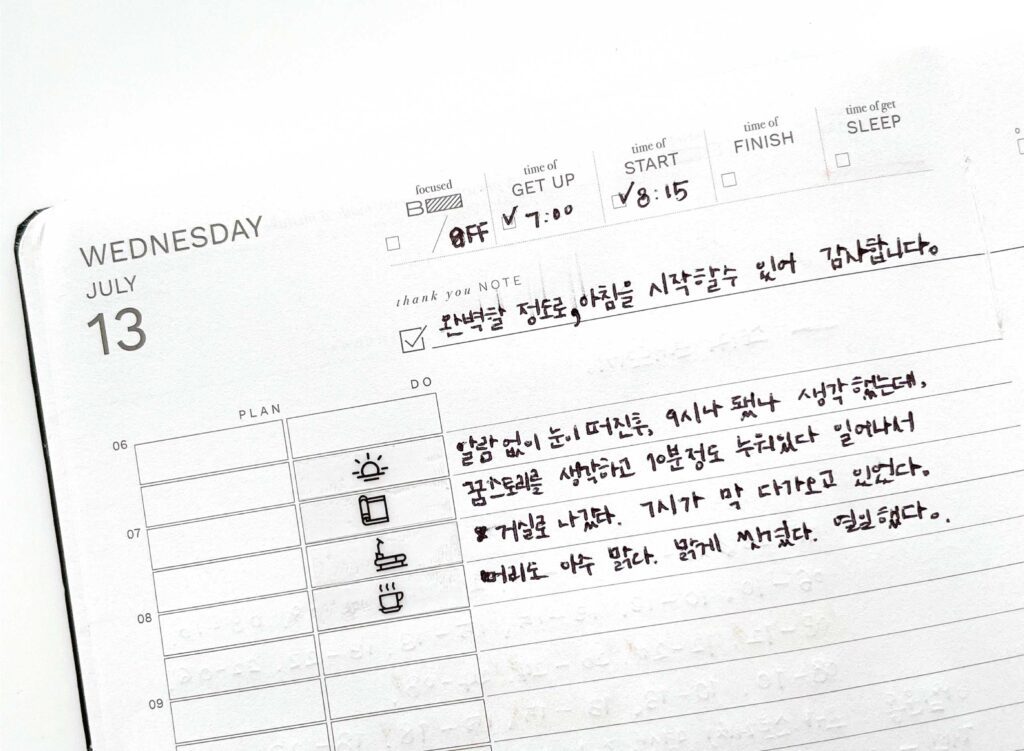 WEDNESDAY
JULY
13
focused
B
/ OFF
time of
GET UP
7:00
time of
START
8:15
time of
FINISH
time of get
SLEEP
thank you NOTE
완벽할 정도로, 아침을 시작할수 있어 감사합니다.
PLAN
DO
06
07
08
09
알람 없이 눈이 떠진후, 9시나 됐나 생각했는데,
꿈스토리를 생각하고 10분정도 누워있다 일어나서
거실로 나갔다. 7시가 막 다가오고 있었다.
머리도 아주 맑다. 맑게 씻겼다. 열일했다.